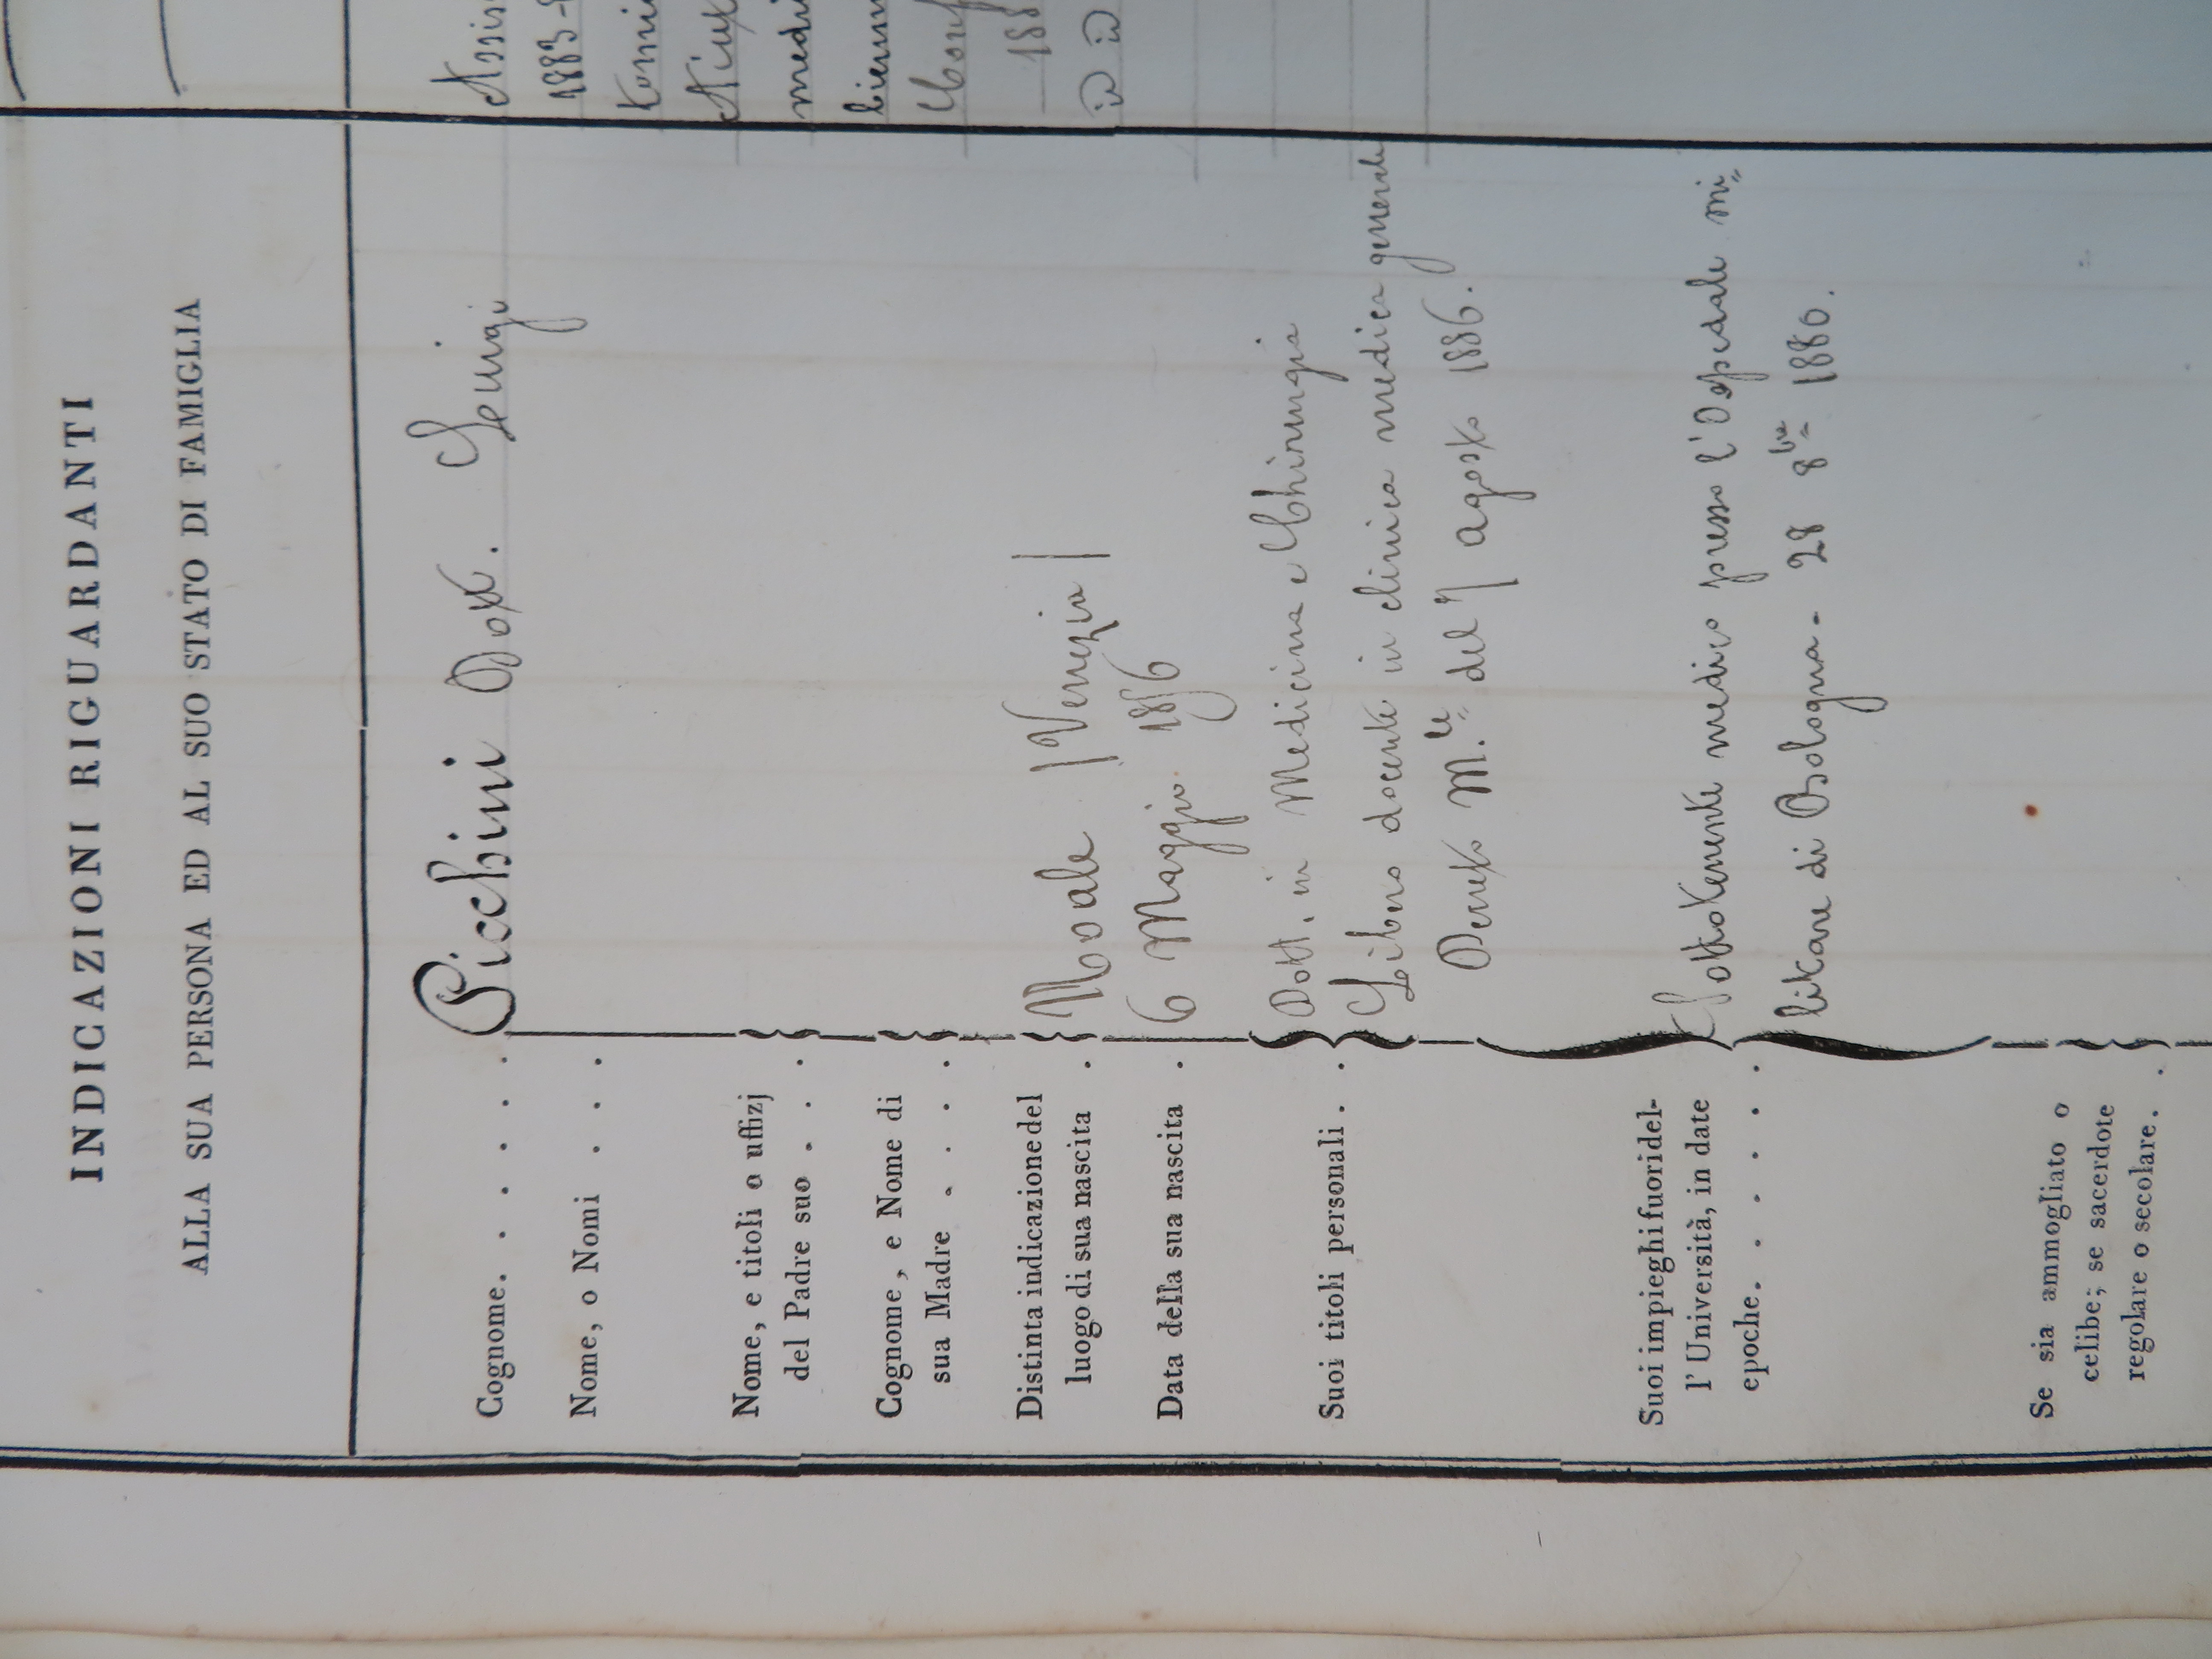 INDICAZIONI RIGUARDANTI
ALLA SUA PERSONA ED AL SUO STATO DI FAMIGLIA
Cognome. . . . . . Picchini Dott. Luigi
Nome, o Nomi . . .
Nome, e titoli o uffizj
del Padre suo . . .
Cognome, e Nome di
sua Madre . . . .
Distinta indicazione del
luogo di sua nascita . Moale | Venezia |
Data della sua nascita . 6 Maggio 1856
Dott. in Medicina e Chirurgia
Suoi titoli personali . . Libero docente in clinica medica generale
Decreto M.le del 7 agosto 1886.
Suoi impieghi fuori del-
l' Università, in date
epoche. . . . . . Sottotenente medico presso l'Ospedale mi„
litare di Bologna - 28 8bre 1880.
Se sia ammogliato o
celibe; se sacerdote
regolare o secolare. .
Assis
1883-
medi
188